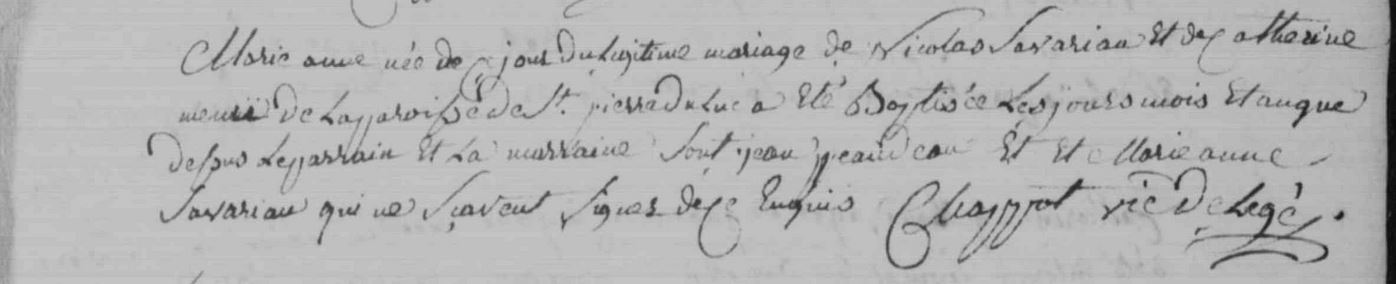 Marie anne née de ce jour du Legitime mariage de Nicolas Savariau Et de Catherine
de La paroisse de St. pierre du Luc a Eté Baptisée Les jours mois Et an que
dessus Le parrain Et La marraine Sont jean Et Et Marie anne
Savariau qui ne Sçavent Signer de ce Enquis Chappot vic de Legé